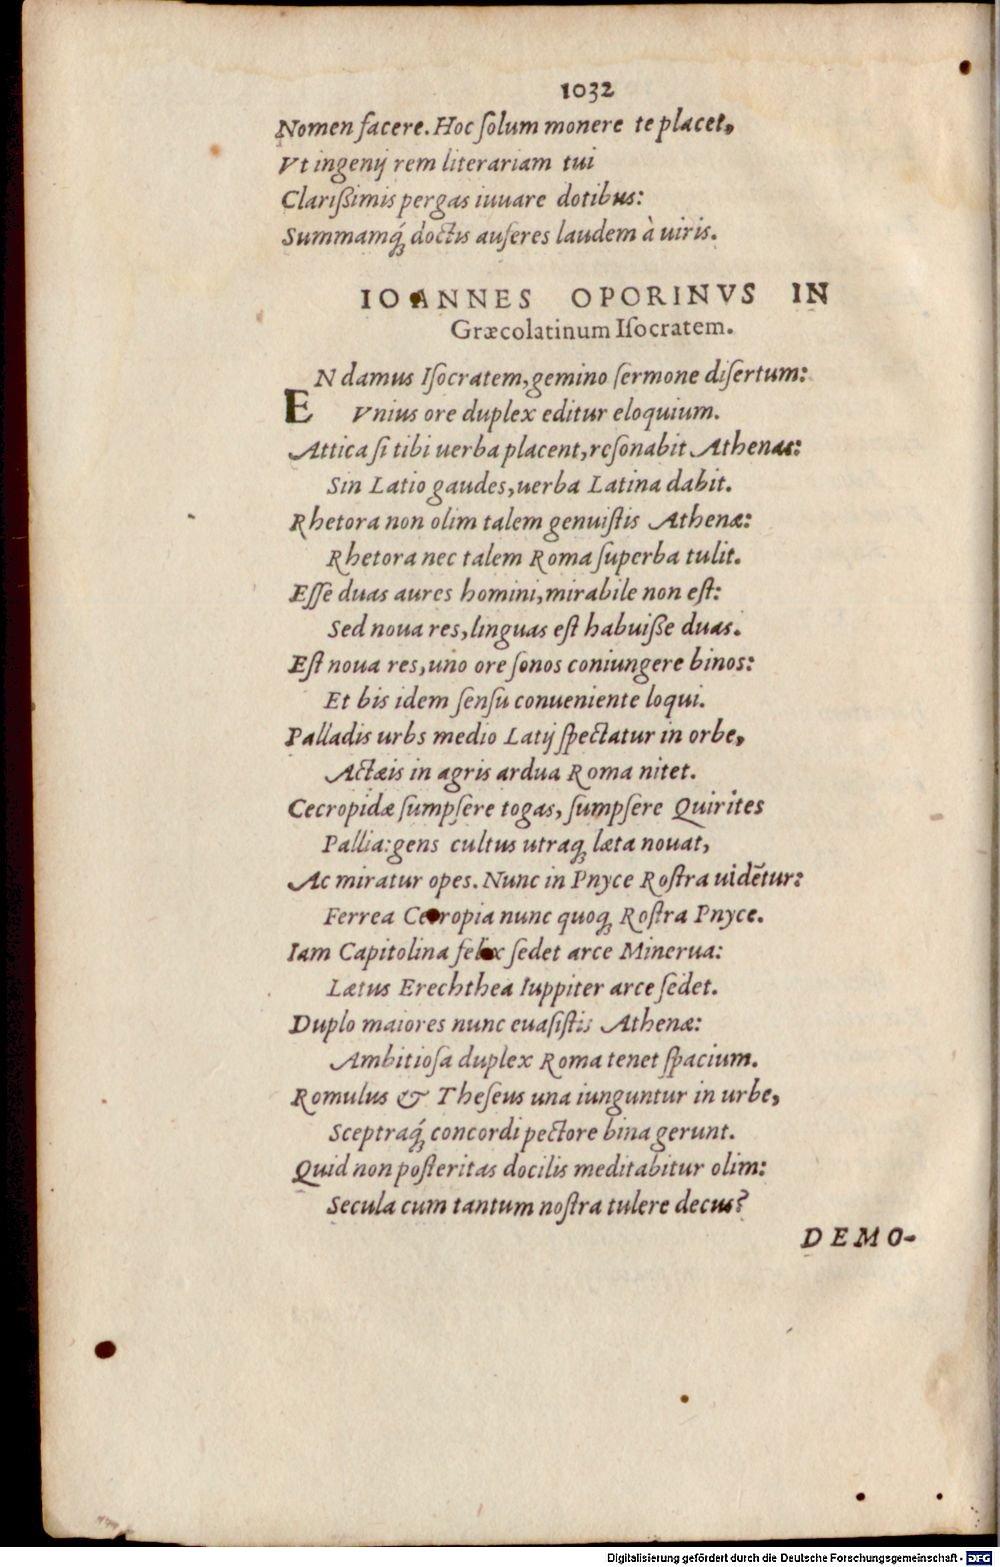 1032
Nomen facere. Hoc ſolum monere te placet,
Vt ingenij rem literariam tui
Clarißimis pergas iuuare dotibus:
Summamq́; doctis auferes laudem à uiris.
IOANNES OPORINVS IN
Græcolatinum Iſocratem.
EN damus Iſocratem, gemino ſermone diſertum:
Vnius ore duplex editur eloquium.
Attica ſi tibi uerba placent, reſonabit Athenas:
Sin Latio gaudes, uerba Latina dabit.
Rhetora non olim talem genuiſtis Athenæ:
Rhetora nec talem Roma ſuperba tulit.
Eſſe duas aures homini, mirabile non eſt:
Sed noua res, linguas eſt habuiße duas.
Eſt noua res, uno ore ſonos coniungere binos:
Et bis idem ſenſu conueniente loqui.
Palladis urbs medio Latij ſpectatur in orbe,
Actæis in agris ardua Roma nitet.
Cecropidæ ſumpſere togas, ſumpſere Quirites
Pallia: gens cultus utraq; læta nouat,
Ac miratur opes. Nunc in Pnyce Roſtra uidẽtur:
Ferrea Cecropia nunc quoq; Roſtra Pnyce.
Iam Capitolina felix ſedet arce Minerua:
Lætus Erechthea Iuppiter arce ſedet.
Duplo maiores nunc euaſiſtis Athenæ:
Ambitioſa duplex Roma tenet ſpacium.
Romulus & Theſeus una iunguntur in urbe,
Sceptraq́; concordi pectore bina gerunt.
Quid non poſteritas docilis meditabitur olim:
Secula cum tantum noſtra tulere decus?
DEMO-
Digitalisierung gefördert durch die Deutsche Forschungsgemeinschaft - DFG